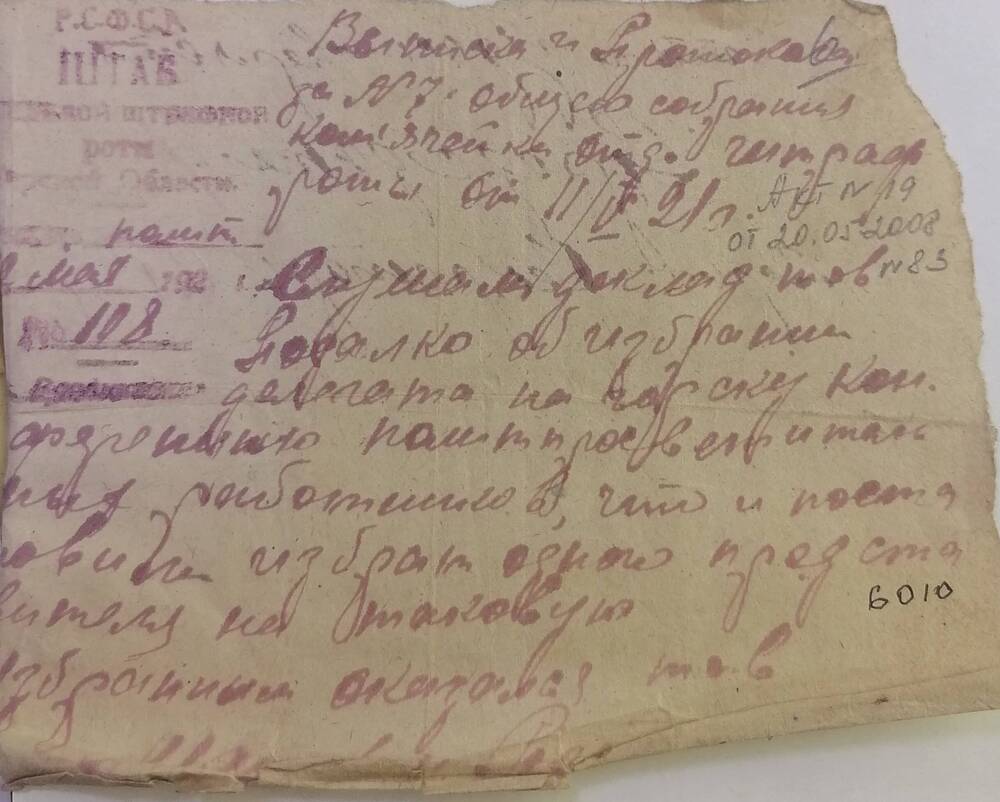 Р.С.Ф.С.Р.
ШТАБ
штрафной
роты
Области.
полит
мая 192 г.
№ 118
Выписка и Протокола
за № 7 общего собрания
ком'ячейки отд. штраф
роты от 11/V 21 г.
Акт № 19
от 20.05.2008
№ 83
Слушали доклад тов
об избрании
делегата на кон.
ференцию политпросветитель
ных работников, что и поста
новили избрат одного предста
вителя на таковую
6010
избранным оказался тов